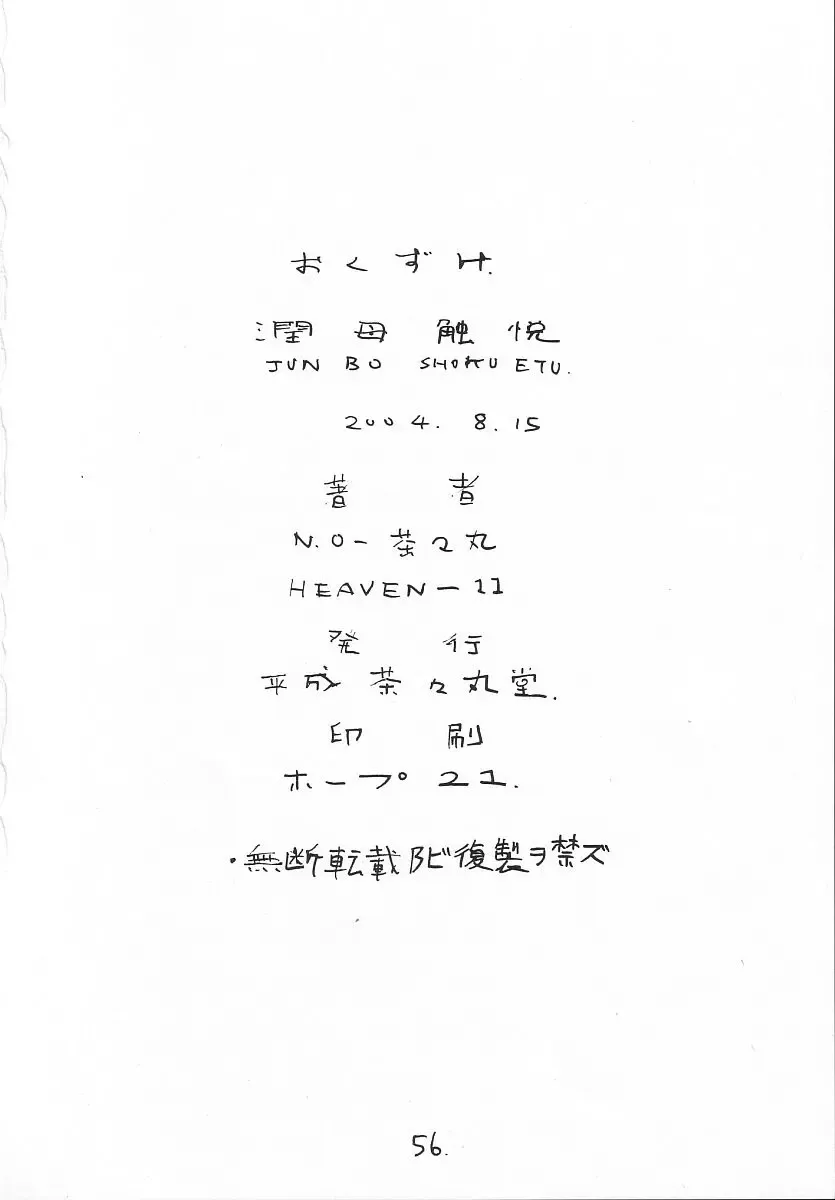 おくずけ.
潤母触悦
JUN BO SHOKU ETU.
2004. 8. 15
著者
N.O－茶々丸
HEAVEN－11
発行
平成茶々丸堂.
印刷
ホープ21.
・無断転載及ビ復製ヲ禁ズ
56.